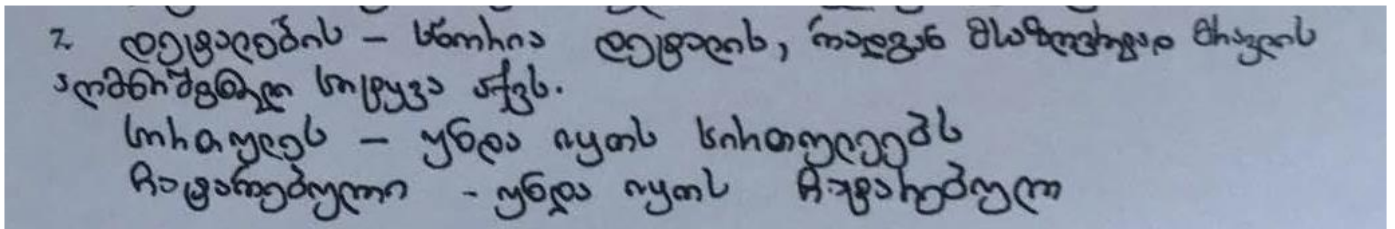 2. დეტალების – სწორია დეტალის, რადგან მსაზღვრელად მრავლის
აღმნიშვნელი სიტყვა აქვს.
სირთულეს – უნდა იყოს სირთულეებს
ჩატარებულია - უნდა იყოს ჩატარებული